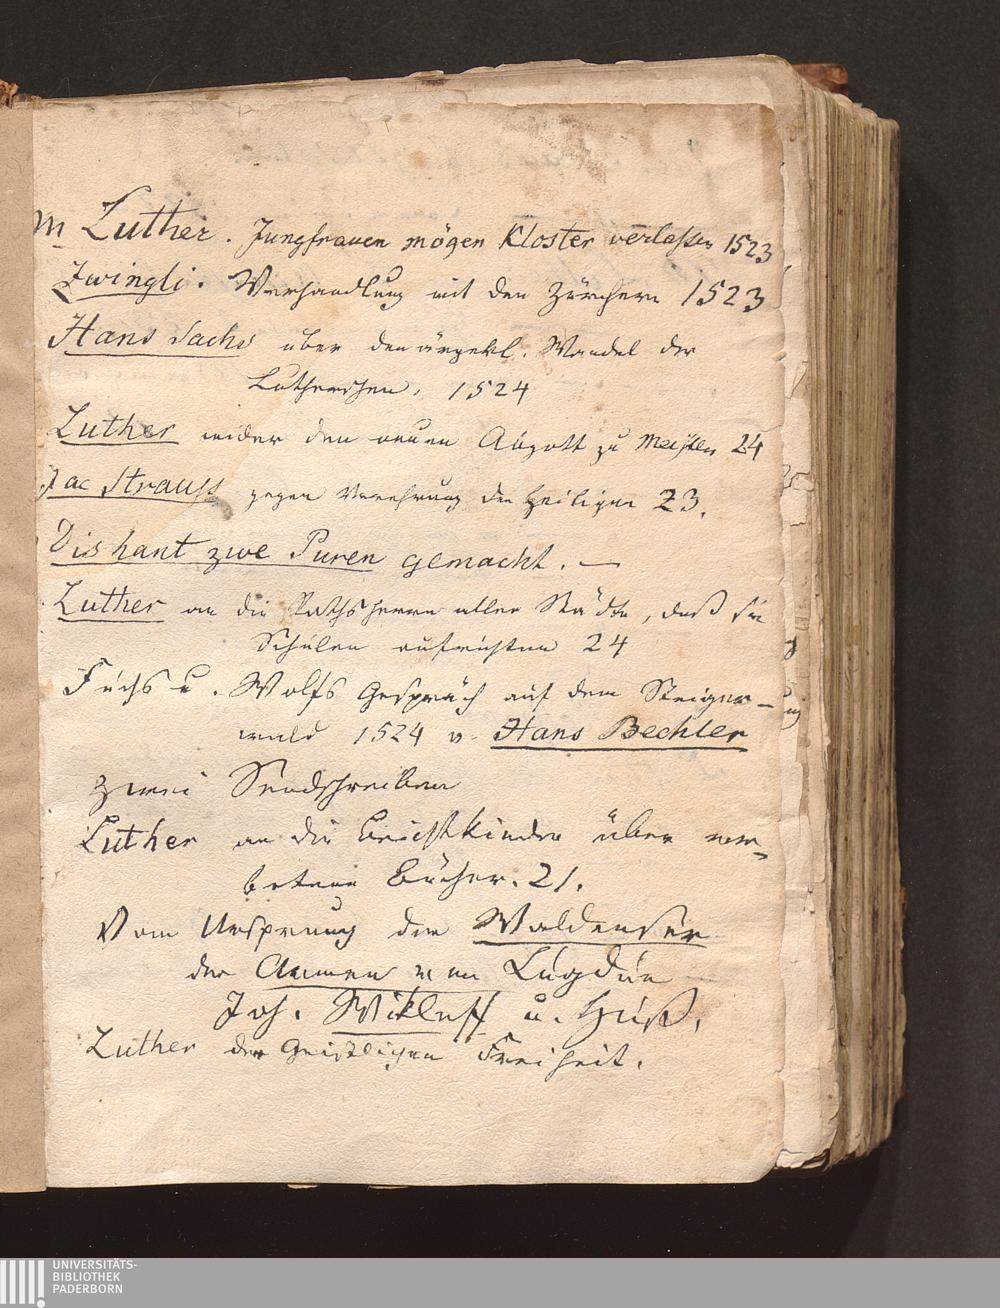 M Luther. Jungfrauen mögen Kloster verlassen 1523
Zwingli. Verhandlung mit den Zürchern 1523
Hans Sachs über den ärgerl. Wandel der
Lutherschen, 1524
Luther wider den neuen Abgott zu Meissen 24
Jac Strauss gegen Verehrung der Heiligen 23.
Dis hant zwe Puren gemacht. —
Luther an die Rathsherrn aller Städte, daß sie
Schulen aufrichten 24
Fuchs u. Wolfs Gespräch auf dem Steiger-
wald 1524 v. Hans Bechler
Zwei Sendschreiben
Luther an die Beichtkinder über ver-
botene Bücher. 21.
Vom Ursprung der Waldenser
der Armen von Lugdun
Joh. Wikleff u. Huß.
Luther der Geistlichen Freiheit.
UNIVERSITÄTS-
BIBLIOTHEK
PADERBORN